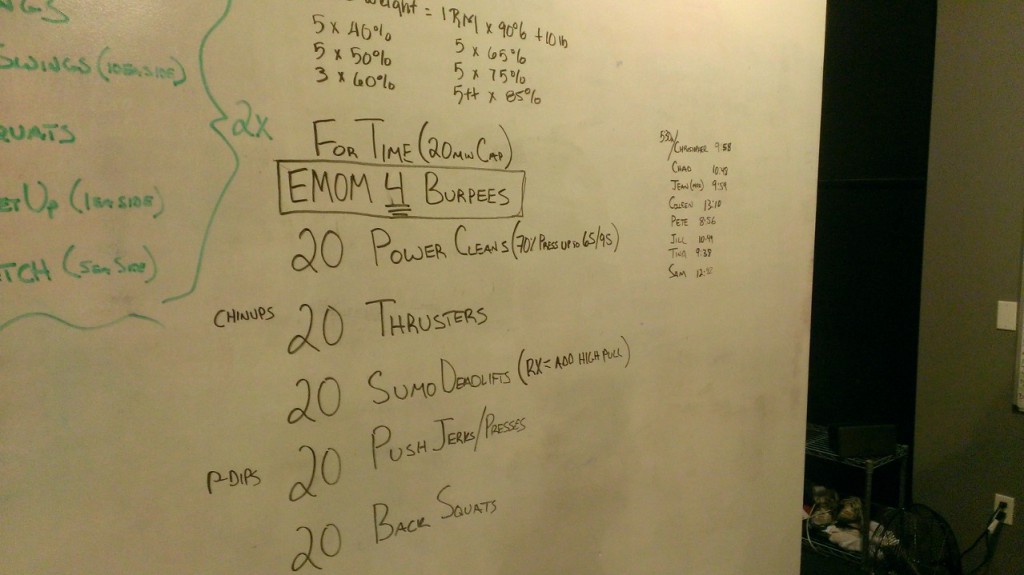 SWINGS (10 EA SIDE)
2X
(1 EA SIDE)
(5 EA SIDE)
= 1RM x 90% + 10 lb
5 x 40%
5 x 50%
3 x 60%
5 x 65%
5 x 75%
5++ x 85%
FOR TIME (20 MIN CAP)
EMOM 4 BURPEES
20 POWER CLEANS (70% PRESS UP TO 65/95)
CHINUPS 20 THRUSTERS
20 SUMO DEADLIFTS (RX = ADD HIGH PULL)
20 PUSH JERKS/PRESSES
P-DIPS
20 BACK SQUATS
CHRISTOPHER 9:58
CHAD
JEAN 9:59
COLEEN 13:10
PETE 8:56
JILL
TINA 9:38
SAM